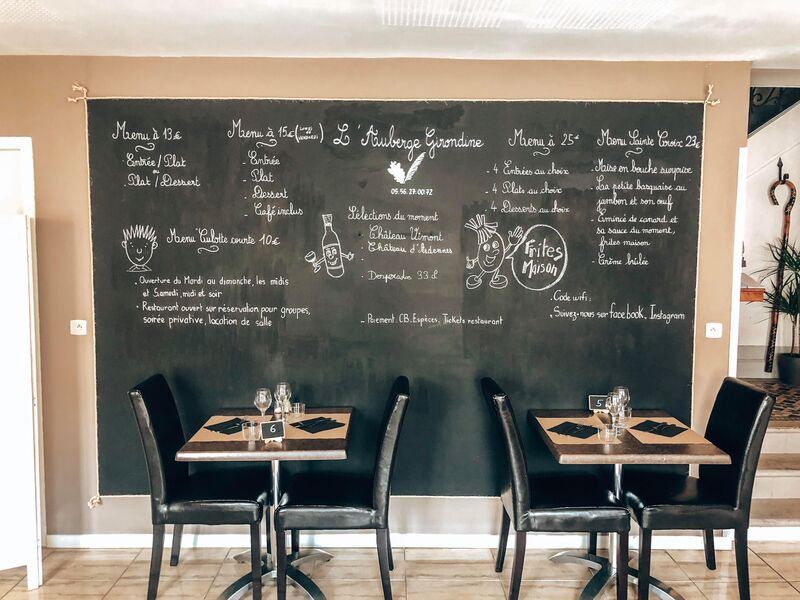 Menu à 13€
. Entrée / Plat
ou
. Plat / Dessert
Menu à 15€
. Entrée
. Plat
. Dessert
. Café inclus
L'Auberge Girondine
05.56.27.00.72
Menu à 25€
. 4 Entrées au choix
. 4 Plats au choix
. 4 Desserts au choix
Menu Sainte Croix 23€
. Mise en bouche surprise
. La petite basquaise au
jambon et son oeuf
. Emincé de canard et
sa sauce du moment,
frites maison
. Crème brûlée
Menu Culotte courte 10€
. Ouverture du Mardi au dimanche, les midis
et Samedi, midi et soir
. Restaurant ouvert sur réservation pour groupes,
soirée privative, location de salle
Sélections du moment
. Château Vimont
. Château d'Ardennes
. Desperados 33cl
. Paiement: CB, Espèces, Tickets restaurant
Frites
Maison
. Code wifi:
. Suivez-nous sur facebook, Instagram
6
5